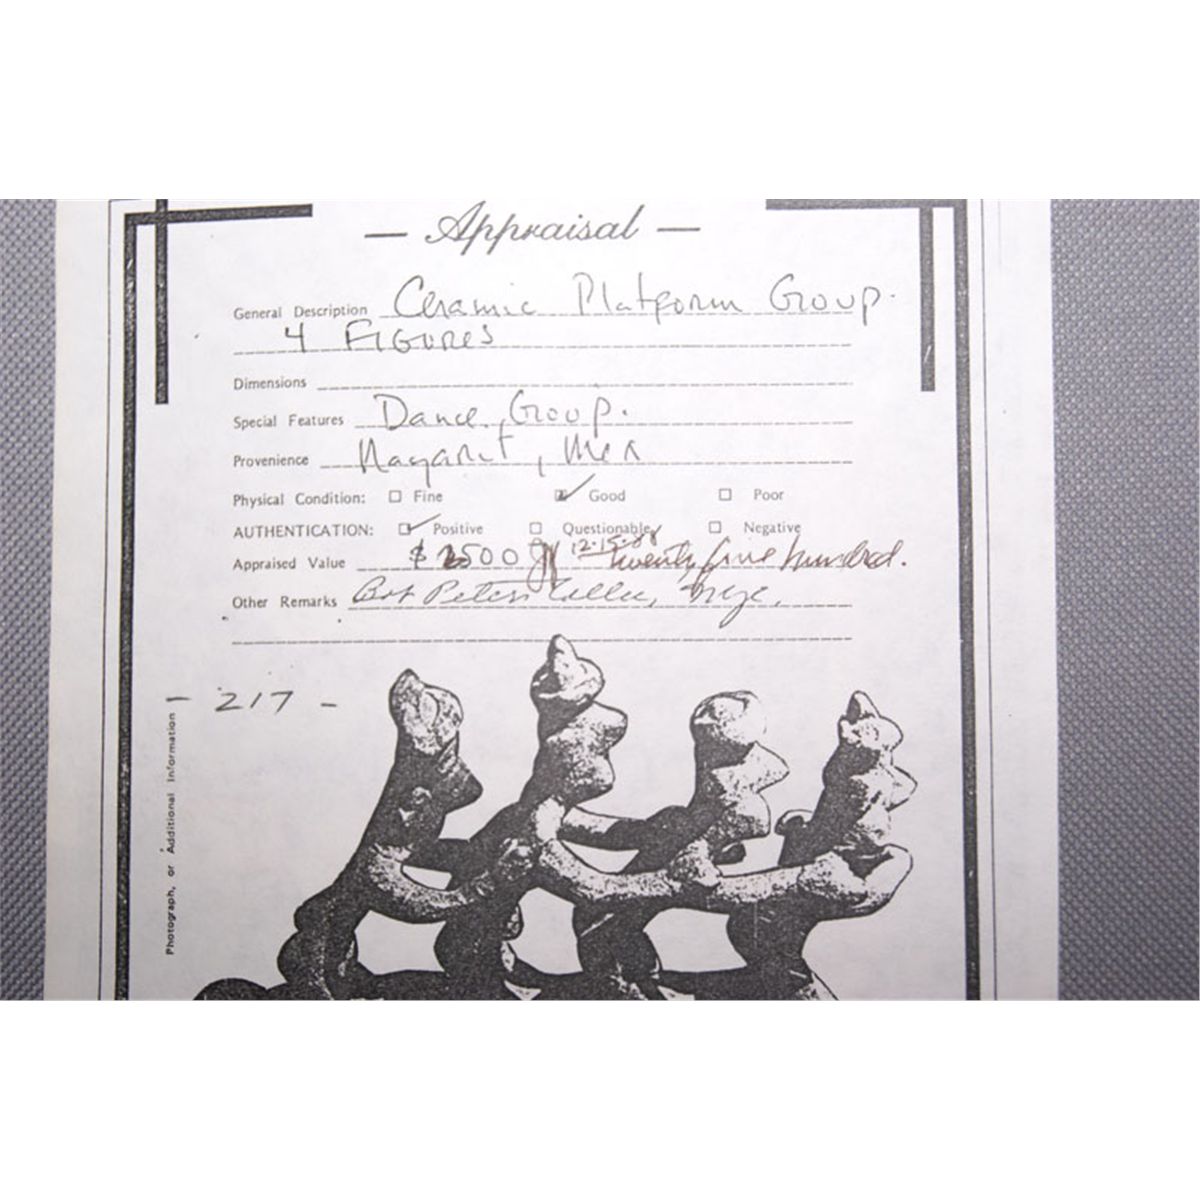 — Appraisal —
General Description Ceramic Platform Group.
4 Figures
Dimensions
Special Features Dance Group.
Provenience Nayarit, Mex
Physical Condition: Fine Good Poor
AUTHENTICATION: Positive Questionable Negative
12-15-88
Appraised Value $2500 twenty five hundred.
Other Remarks Bob Peters
- 217 -
Photograph, or Additional Information